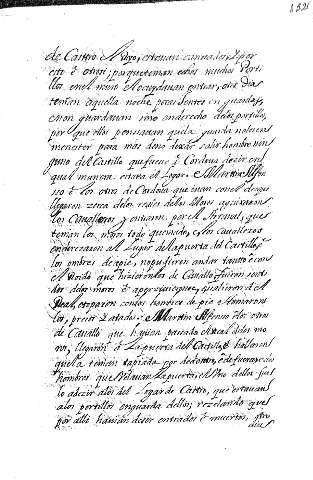 de Castro el Rio, estavan cansados, e por
esto ò otrosi; porque tenian echos muchos Porti-
llos, en el muro ellos cuydavan entrar, otro dia
tenian aquella noche puestos en guarda,
e non guardavan sino en derecho delos portillos,
por que ellos pensavan que la guarda no le era
menester para mas de no dexar salir hombre nin-
guno del Castillo que fuese à Cordova dezir en
qual manera estava el Logar. e Martin Alfon-
so è los otros de Cordova que ivan con el de que
llegaron zerca delos reales delos Moros aguixaron
los Cavalleros y entraron por el Arraval, que
tenian los moros todo quemado, e los cavalleros
enderezaron al Lugar de la puerta del Castillo, è
los ombres de apie, no pudieron andar tanto è con
el Roido que hizieron los de Cavallo fueron senti-
dos delos moros è apercivieronse, e salieron del
Real, e toparon con los hombres de pie e tomaron
los, presos e atados: e Martin Alfonso è los otros
de Cavallo que havian pasado el Real delos mo-
ros, llegaron à la puerta del Castillo, è hallaron
que la tenian tapiada por de dentro, è de fuera
hombres que velavan la puerta; e Uno dellos fue
lo a dezir alos del Logar de Castro, que estavan
alos portillos en guarda dellos; rezelando que
por alli havian de ser entrados è muertos, otro